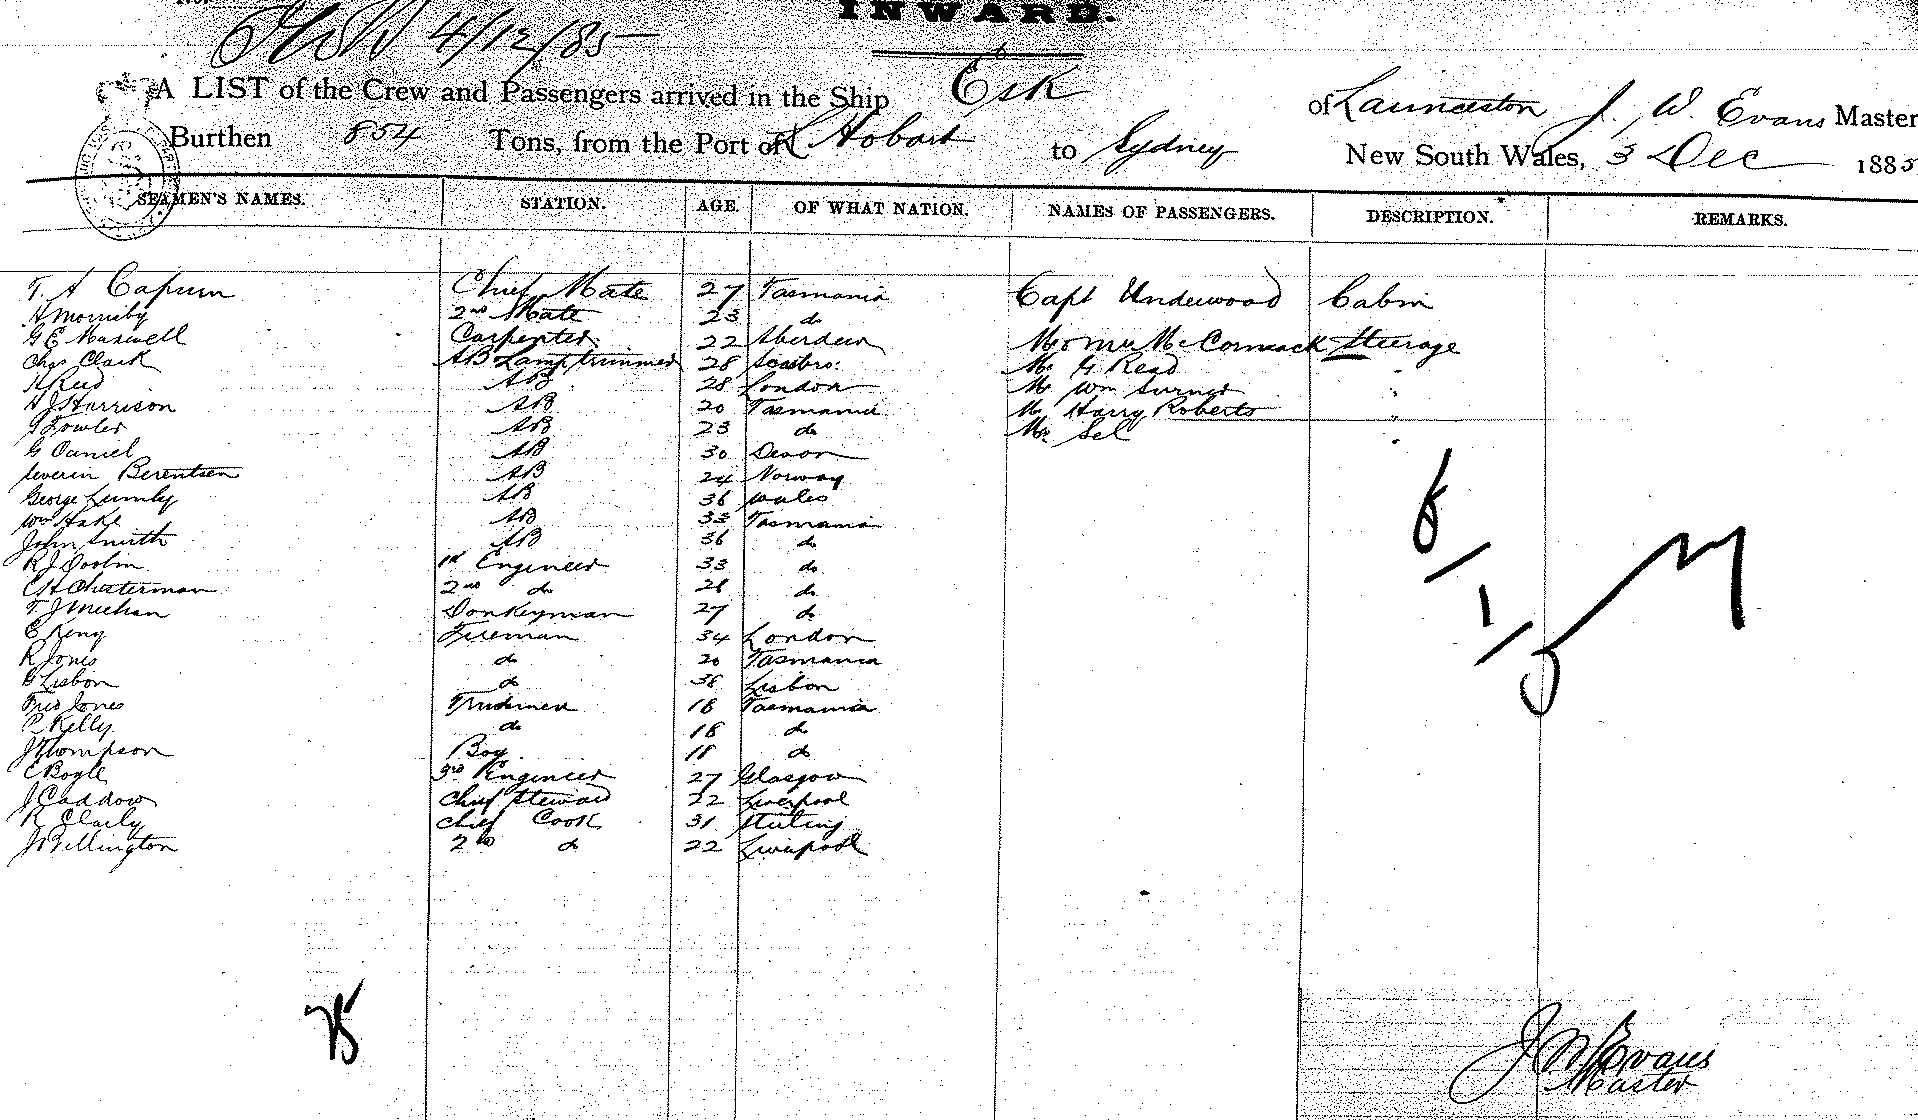 INWARD.
4/12/85
A LIST of the Crew and Passengers arrived in the Ship Esk of Launceston J. W. Evans Master
Burthen 854 Tons, from the Port of Hobart to Sydney New South Wales, 3 Dec 1885
SEAMEN'S NAMES. STATION. AGE. OF WHAT NATION. NAMES OF PASSENGERS. DESCRIPTION. REMARKS.
T. A Capurn Chief Mate 27 Tasmania Capt Underwood Cabin
A Mornsby 2nd Mate 23 do
G E Maxwell Carpenter 22 Aberdeen Mr & Mrs McCormack Steerage
Chas Clark AB Lamptrimmer 28 Scarbro: Mr G Read "
H Reid AB 28 London Mr Wm Turner "
H J Harrison AB 20 Tasmania Mr Harry Roberts "
Fowler AB 23 do Mr Sel "
G Daniel AB 30 Devon
Severin Berentsen AB 24 Norway
George Lumby AB 36 Wales
Wm Hake AB 33 Tasmania
John Smith AB 36 do
R J 1st Engineer 33 do
C H Chesterman 2nd do 21 do
T J Meehan Donkeyman 27 do
C King Fireman 34 London
R Jones do 20 Tasmania
G Lisbon do 38 Lisbon
Fred Jones Trimmer 18 Tasmania
P Kelly do 18 do
J Thompson Boy 18 do
C Bogle 3rd Engineer 27 Glasgow
J Caddow Chief Steward 22 Liverpool
R Clarly Chief Cook 31 Stirling
J Billington 2nd do 22 Liverpool
8/1/5
25
J W Evans
Master